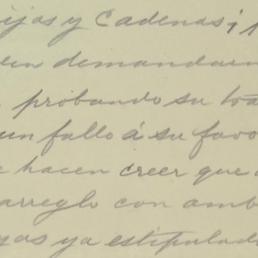 ijas y Cadenas;
demandaron
probando su
un fallo á su favo
hacen creer que
arreglo con amb
ya estipulado